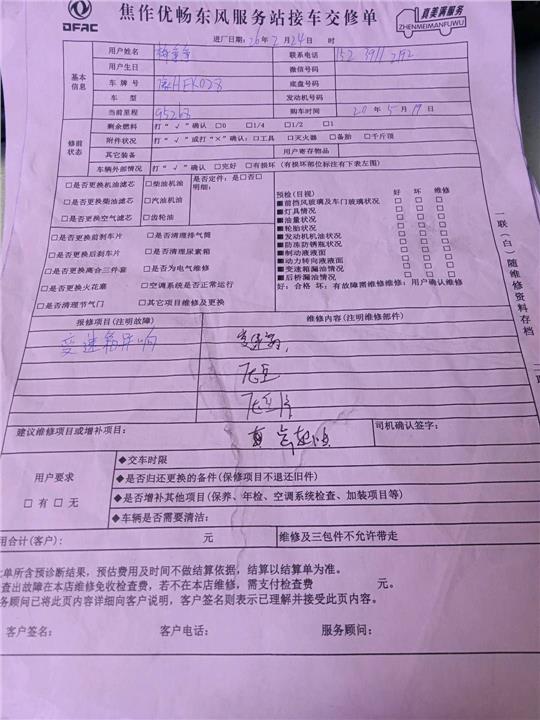 DFAC
焦作优畅东风服务站接车交修单
真美满服务
ZHENMEIMANFUWU
进厂日期: 26年2月24日 时
基本信息
用户姓名 联系电话 152 3911 2192
用户生日 微信号码
车牌号 底盘号码
车型 发动机号码
当前里程 95268 购车时间 20年5月19日
修前状态
剩余燃料 打“√”确认 □0 □1/4 □1/2 □1
附件状况 打“√”或打“×”确认: □工具 □灭火器 □备胎 □千斤顶
其它装备 用户寄存物品
车辆外部情况 打“√”确认 □完好 □有损坏 (有损坏部位标注有下表左图)
□是否更换机油滤芯 □柴油机油
□是否更换柴油滤芯 □汽油机油
□是否更换空气滤芯 □齿轮油
是否定件: 是□否□
明细:
□是否更换前刹车片 □是否清理排气筒
□是否更换后刹车片 □是否清理尿素箱
□是否更换离合三件套 □是否为电气维修
□是否更换火花塞 □空调系统是否正常运行
□是否清理节气门 □其它项目维修及更换
预检(目视) 好 坏 维修
■前挡风玻璃及车门玻璃状况 □ □ □
■灯具情况 □ □ □
■油量状况 □ □ □
■轮胎状况 □ □ □
■发动机机油状况 □ □ □
■防冻防锈瓶状况 □ □ □
■制动液液面 □ □ □
■动力转向液液面 □ □ □
■变速箱漏油情况 □ □ □
■后桥漏油情况 □ □ □
好: 合格 坏: 有故障需维修维修: 用户确认维修
一联(白)随维修资料存档
报修项目(注明故障) 维修内容(注明维修部件)
变速箱异响 变速箱,
飞豆
飞豆片
建议维修项目或增补项目: 司机确认签字:
用户要求
□有 □无
◆交车时限
◆是否归还更换的备件(保修项目不退还旧件)
◆是否增补其他项目(保养、年检、空调系统检查、加装项目等)
◆车辆是否需要清洁:
用合计(客户): 元 维修及三包件不允许带走
单所含预诊断结果, 预估费用及时间不做结算依据, 结算以结算单为准。
查出故障在本店维修免收检查费, 若不在本店维修, 需支付检查费 元。
务顾问已将此页内容详细向客户说明, 客户签名则表示已理解并接受此页内容。
客户签名: 客户电话: 服务顾问: